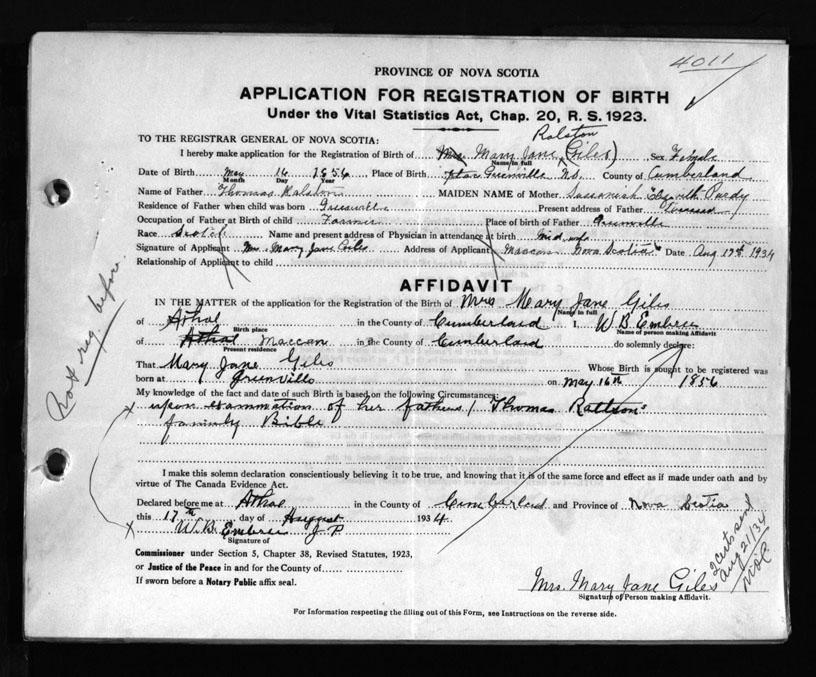 4011
PROVINCE OF NOVA SCOTIA
APPLICATION FOR REGISTRATION OF BIRTH
Under the Vital Statistics Act, Chap. 20, R. S. 1923.
TO THE REGISTRAR GENERAL OF NOVA SCOTIA:
Ralston
I hereby make application for the Registration of Birth of Mrs. Mary Jane (Giles) Sex Female
Name in full
Date of Birth May 16 1856 Place of Birth Greenville N.S. County of Cumberland
Month Day Year
Name of Father Thomas Ralston MAIDEN NAME of Mother Purdy
Residence of Father when child was born Greenville Present address of Father Deceased
Occupation of Father at Birth of child Farmer Place of birth of Father Greenville
Race Scotch Name and present address of Physician in attendance at birth Mid wife
Signature of Applicant Mrs. Mary Jane Giles Address of Applicant Maccan Nova Scotia Date Aug 17th 1934
Relationship of Applicant to child
AFFIDAVIT
IN THE MATTER of the application for the Registration of the Birth of Mrs Mary Jane Giles
Name in full
of Athol in the County of Cumberland I, W B Embree
Birth place Name of person making Affidavit
of Athol Maccan in the County of Cumberland do solemnly declare:
Present residence
That Mary Jane Giles Whose Birth is sought to be registered was
born at Greenville on May 16th 1856
My knowledge of the fact and date of such Birth is based on the following Circumstances
x upon examination of her fathers / Thomas Ralston
family Bible
I make this solemn declaration conscientiously believing it to be true, and knowing that it is of the same force and effect as if made under oath and by
virtue of The Canada Evidence Act.
Declared before me at Athol in the County of Cumberland and Province of Nova Scotia
this 17th day of August 1934.
x W.B. Embree J P
Signature of
Commissioner under Section 5, Chapter 38, Revised Statutes, 1923,
or Justice of the Peace in and for the County of
If sworn before a Notary Public affix seal.
Mrs. Mary Jane Giles
Signature of Person making Affidavit.
For Information respecting the filling out of this Form, see Instructions on the reverse side.
Not reg before.
2 certs send
Aug 21/34